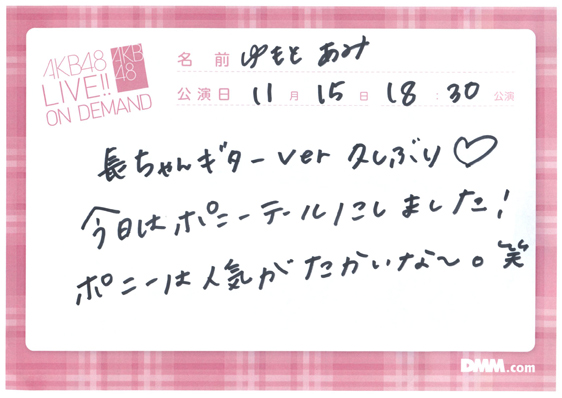 AKB48
LIVE!!
ON DEMAND
AKB
48
名前 ゆもと あみ
公演日 11月15日 18:30公演
長ちゃんギターver 久しぶり♡
今日はポニーテールにしました!
ポニーは人気がたかいな〜。笑
DMM.com